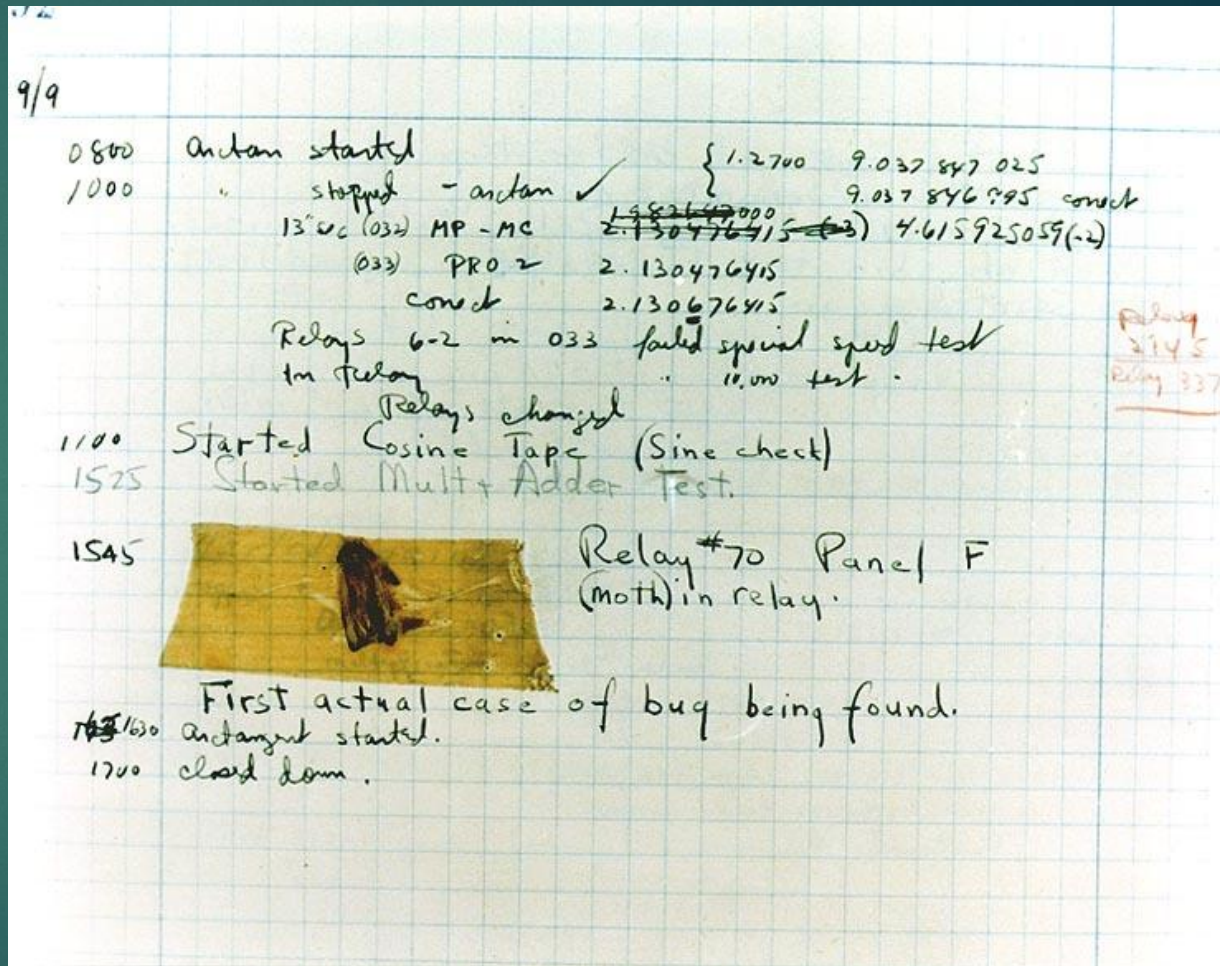 9/9
0800 antan started { 1.2700 9.037 847 025
1000 " stopped - antan ✓ 9.037 846 995 conect
13" uc (032) MP - MC 2.130476415 (-3) 4.615925059(-2)
(033) PRO 2 2.130476415
conect 2.130676415
Relays 6-2 in 033 failed special speed test
In Relay " 10,000 test .
Relays changed
Relay
2145
Relay 337
1100 Started Cosine Tape (Sine check)
1525 Started Mult + Adder Test.
1545 Relay #70 Panel F
(moth) in relay.
First actual case of bug being found.
1630 antangent started.
1700 closed down.